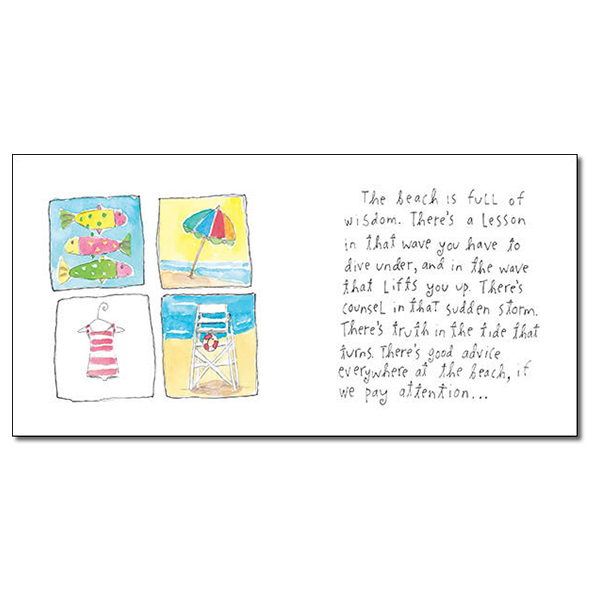 The beach is full of
wisdom. There's a Lesson
in that wave you have to
dive under, and in the wave
that Lifts you up. There's
counsel in that sudden storm.
There's truth in the tide that
turns. There's good advice
everywhere at the beach, if
we pay attention...